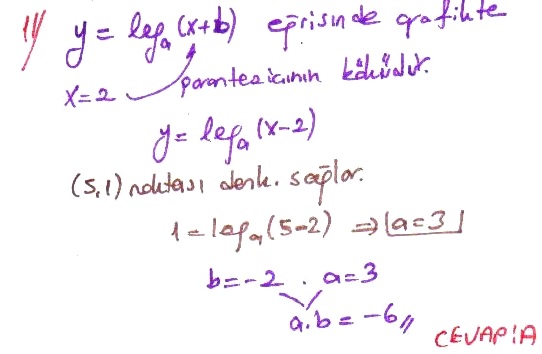 11) y = log_a (x+b) eğrisinde grafikte
x=2 parantez içinin köküdür.
y = log_a (x-2)
(5,1) noktası denk. sağlar.
1 = log_a (5-2) ⇒ a=3
b=-2 . a=3
a.b = -6 //
CEVAP: A